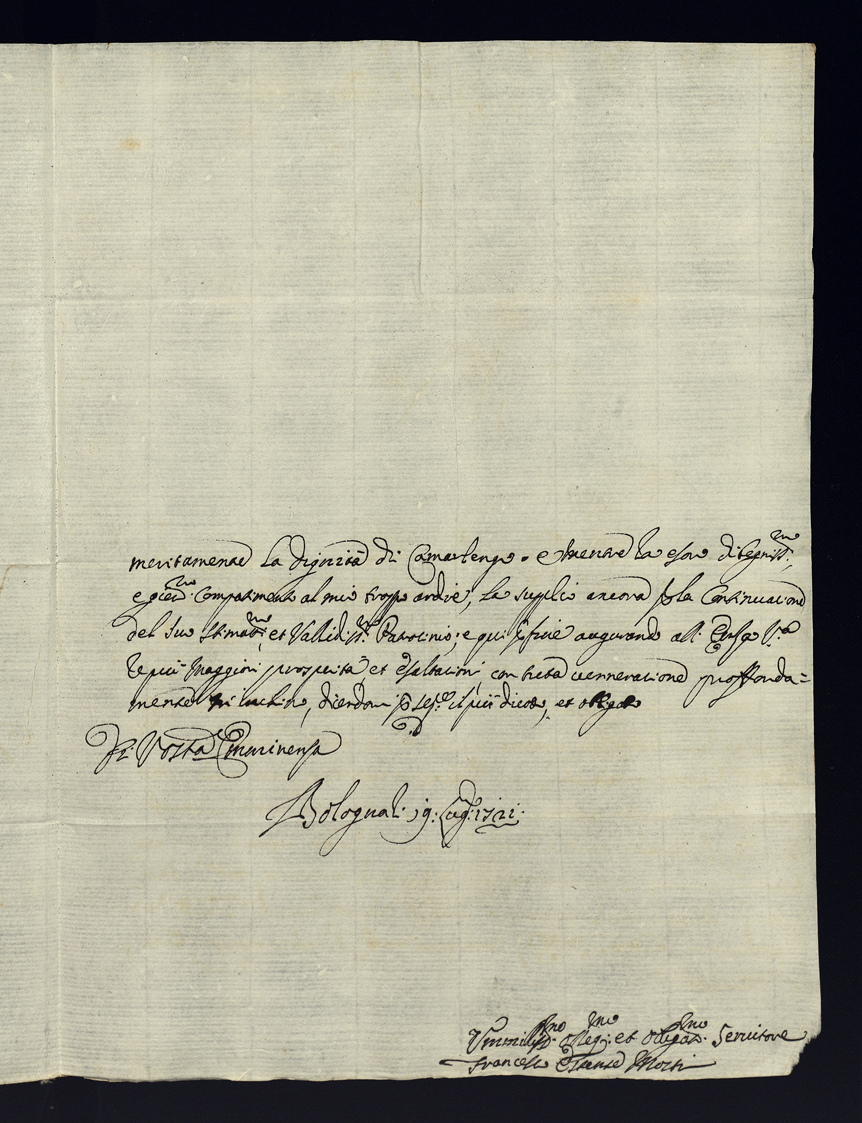 meritamente la dignità di Camerlengo. e mentre la
Compatimento al mio troppo ardire, la suplico ancora p la Continuatione
del suo stimat.mo, et Vallidiss.mo Patrocinio; e qui p fine augurando all'
le più Maggiori prosperità et esaltationi con tutta venneratione proffonda=
mente m'inchino, dicendomi p sempre il più divoto, et obligato
Di Vostra Emminenza
Bologna li 19: Lug: 1721:
Ummiliss.mo et Obligat.mo Servitore
Francesco Estense Mosti